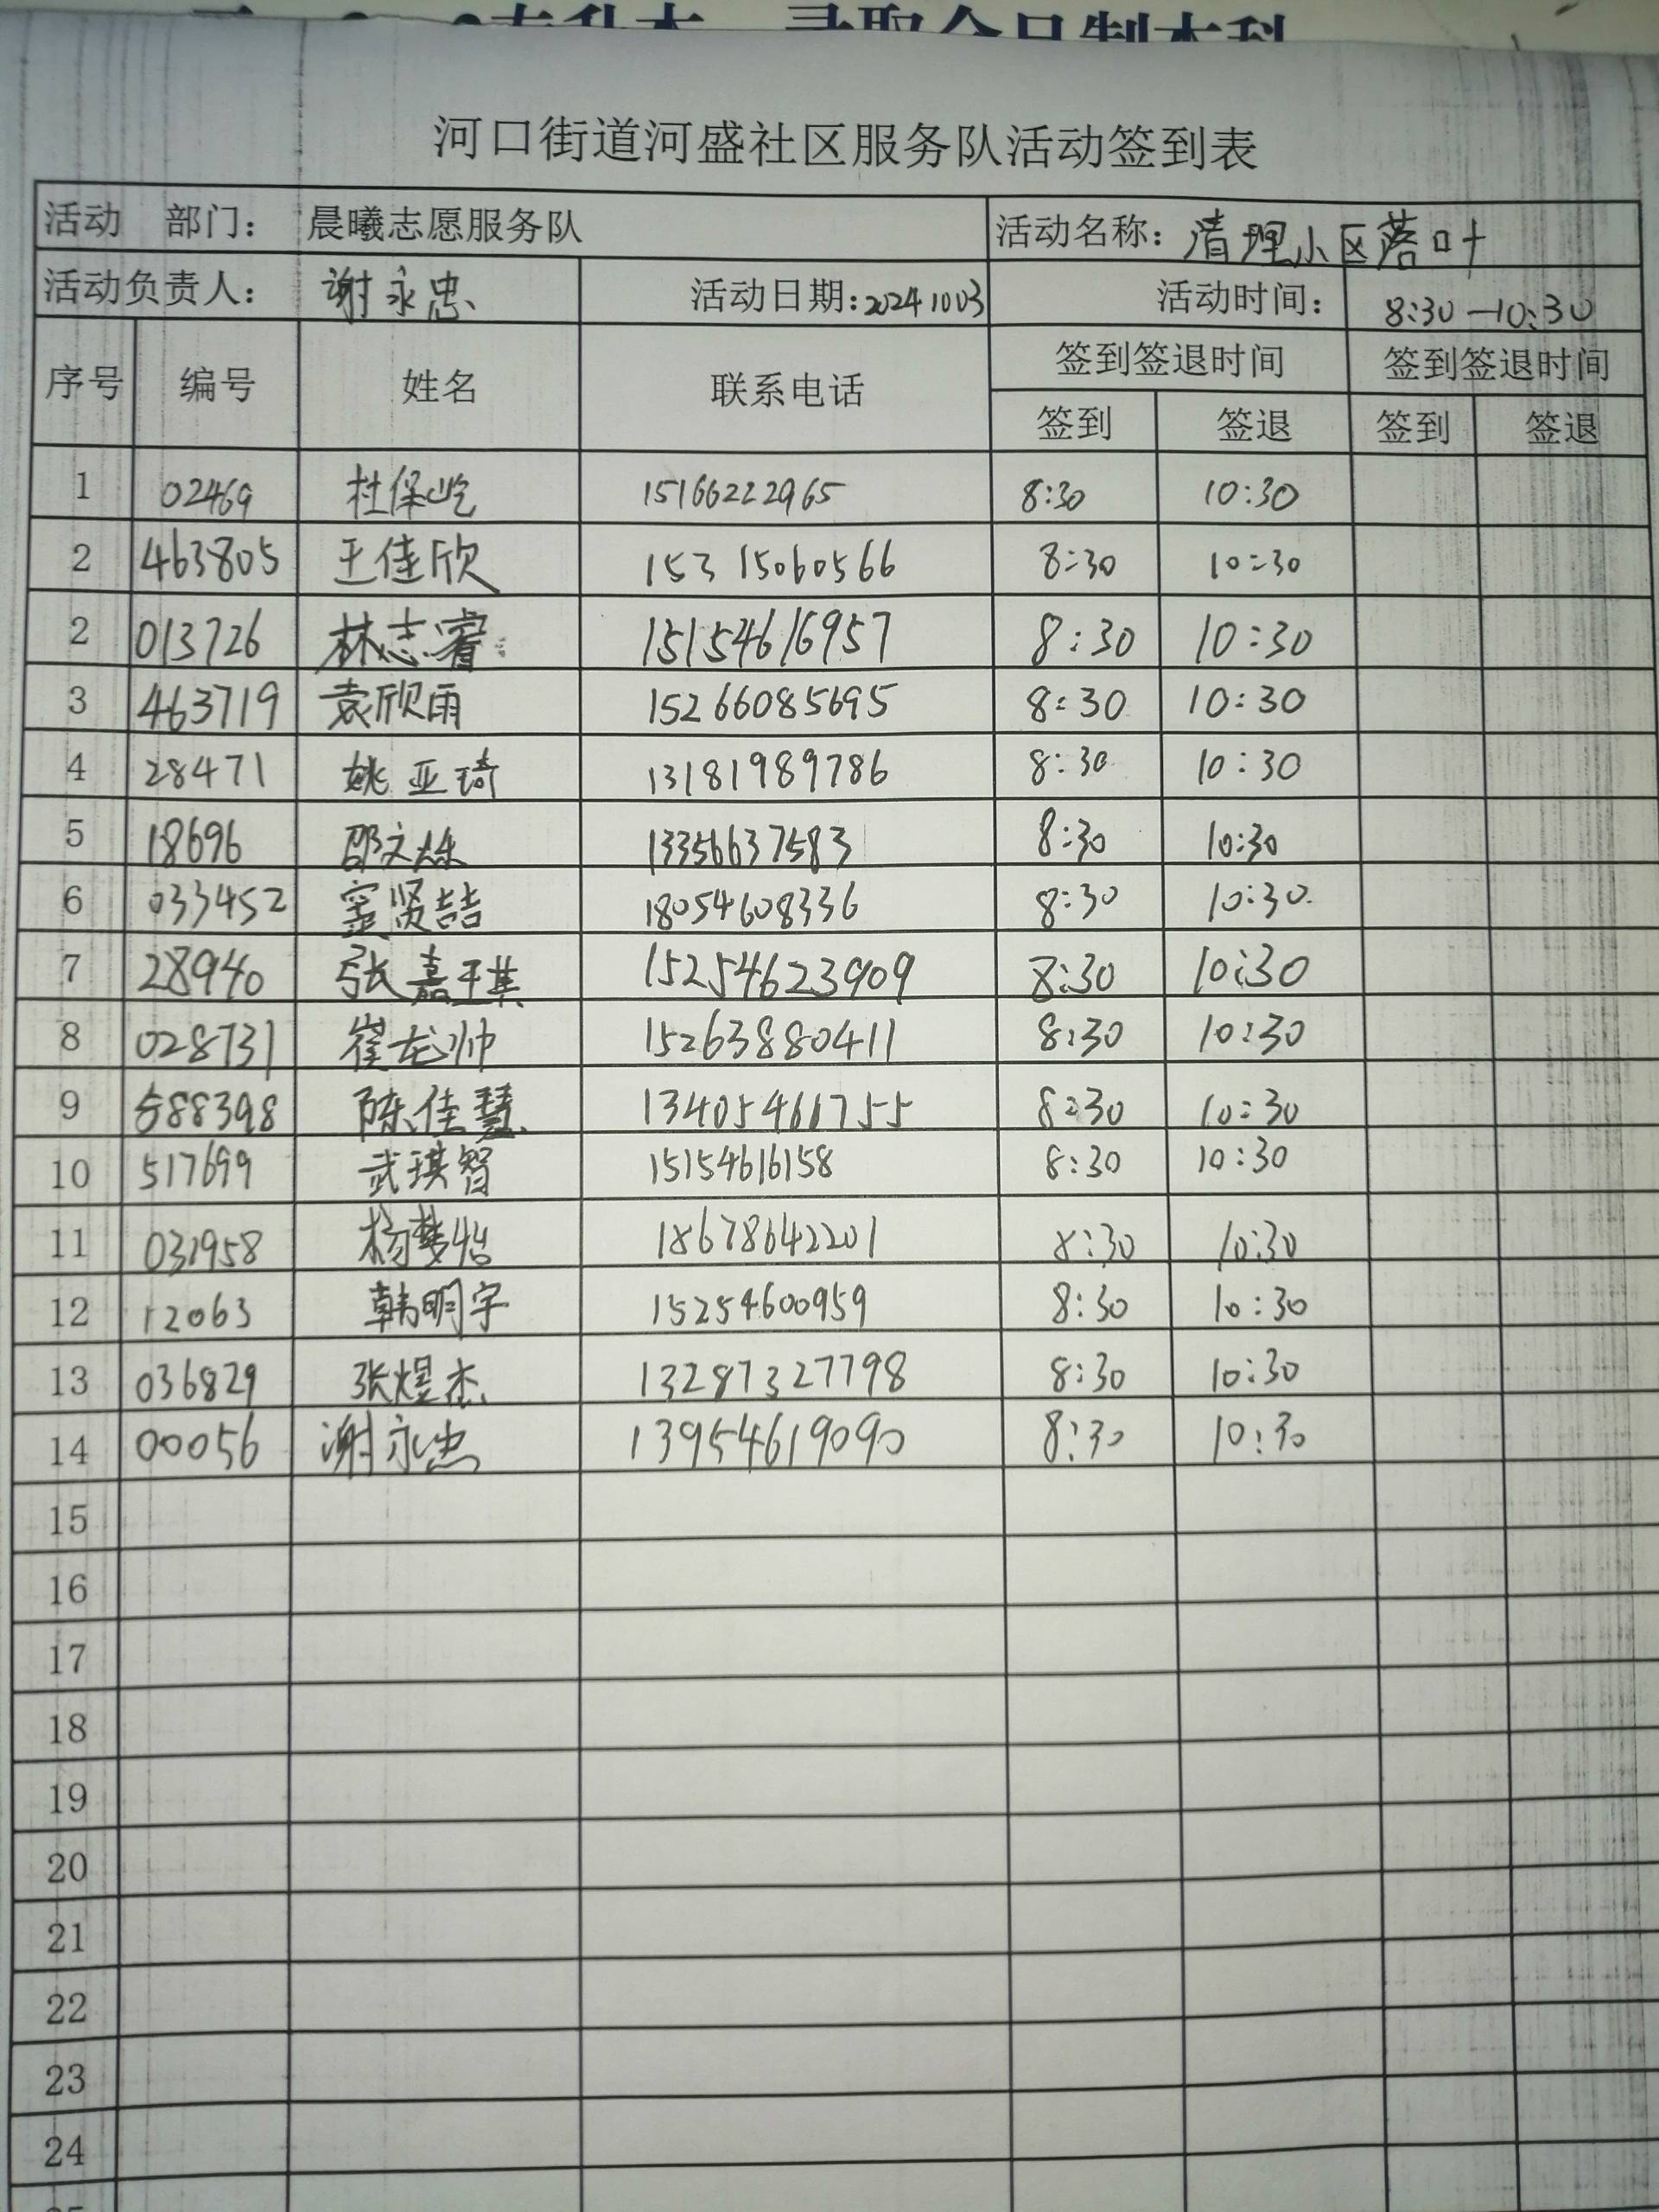 专升本 录取全日制本科
河口街道河盛社区服务队活动签到表
活动 部门： 晨曦志愿服务队 活动名称：清理小区落叶
活动负责人： 谢永忠 活动日期：20241003 活动时间： 8:30-10:30
序号 编号 姓名 联系电话 签到签退时间 签到签退时间
签到 签退 签到 签退
1 02469 杜保屹 15166222965 8:30 10:30
2 463805 王佳欣 15315060566 8:30 10:30
2 013726 林志睿 15154616957 8:30 10:30
3 463719 袁欣雨 15266085695 8:30 10:30
4 28471 姚亚琦 13181989786 8:30 10:30
5 18696 邵文烁 13356637583 8:30 10:30
6 033452 窦贤喆 18054608336 8:30 10:30
7 28940 张嘉琪 15254623909 8:30 10:30
8 028731 崔龙帅 15263880411 8:30 10:30
9 588398 陈佳慧 13405461755 8:30 10:30
10 517699 武琪智 15154616158 8:30 10:30
11 031958 杨梦怡 18678642201 8:30 10:30
12 12063 韩明宇 15254600959 8:30 10:30
13 036829 张煜杰 13287327798 8:30 10:30
14 00056 谢永忠 13954619090 8:30 10:30
15
16
17
18
19
20
21
22
23
24